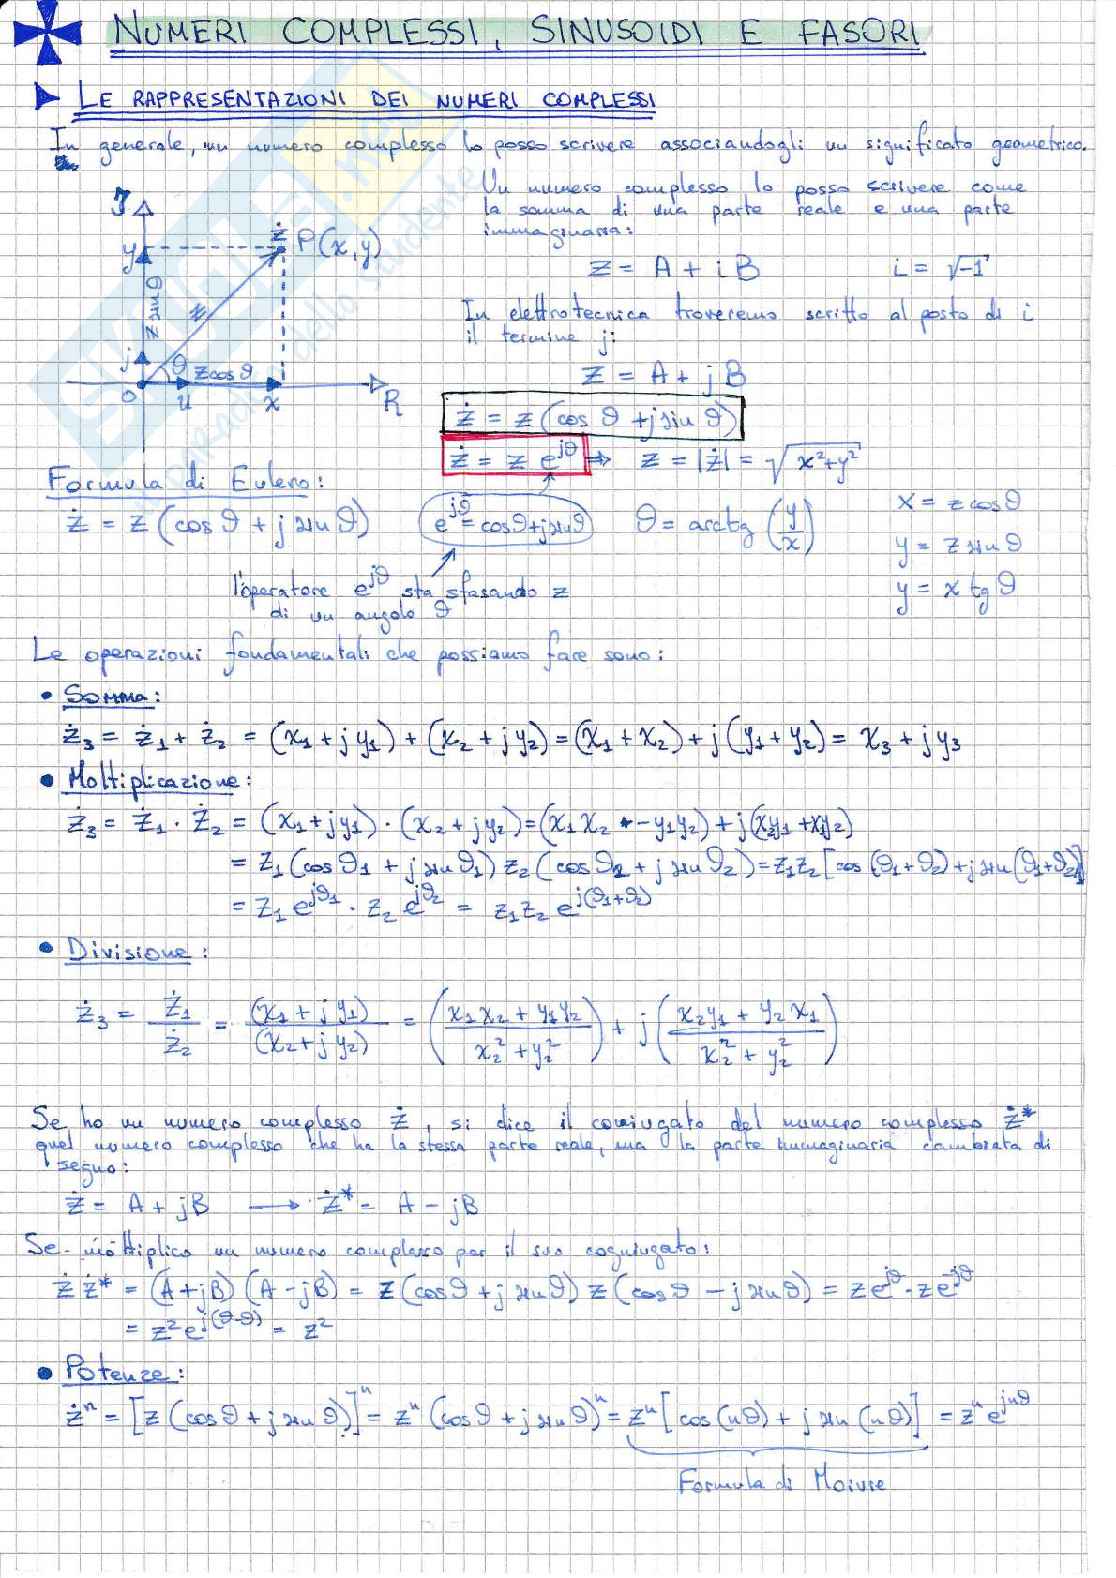 NUMERI COMPLESSI, SINUSOIDI E FASORI
LE RAPPRESENTAZIONI DEI NUMERI COMPLESSI
In generale, un numero complesso lo posso scrivere associandogli un significato geometrico.
Un numero complesso lo posso scrivere come
la somma di una parte reale e una parte
immaginaria:
Z = A + iB   i = √-1
In elettrotecnica troveremo scritto al posto di i
il termine j:
Z = A + jB
ż = z(cos ϑ + j sin ϑ)
ż = z e^{jϑ} ⇒ z = |ż| = √(x²+y²)
J
y
ż P(x,y)
z sin ϑ
j
ϑ z cos ϑ
O u x R
Formula di Eulero:
ż = z (cos ϑ + j sin ϑ)   e^{jϑ} = cos ϑ + j sin ϑ   ϑ = arctg (y/x)
x = z cos ϑ
y = z sin ϑ
y = x tg ϑ
l'operatore e^{jϑ} sta sfasando z
di un angolo ϑ
Le operazioni fondamentali che possiamo fare sono:
• Somma:
ż₃ = ż₁ + ż₂ = (x₁ + jy₁) + (x₂ + jy₂) = (x₁ + x₂) + j(y₁ + y₂) = x₃ + jy₃
• Moltiplicazione:
ż₃ = ż₁ · ż₂ = (x₁ + jy₁) · (x₂ + jy₂) = (x₁x₂ - y₁y₂) + j(x₂y₁ + x₁y₂)
= z₁(cos ϑ₁ + j sin ϑ₁) z₂(cos ϑ₂ + j sin ϑ₂) = z₁z₂[cos(ϑ₁+ϑ₂) + j sin(ϑ₁+ϑ₂)]
= z₁ e^{jϑ₁} · z₂ e^{jϑ₂} = z₁z₂ e^{j(ϑ₁+ϑ₂)}
• Divisione:
ż₃ = ż₁/ż₂ = (x₁ + jy₁)/(x₂ + jy₂) = ((x₁x₂ + y₁y₂)/(x₂² + y₂²)) + j((x₂y₁ + y₂x₁)/(x₂² + y₂²))
Se ho un numero complesso ż, si dice il coniugato del numero complesso ż*
quel numero complesso che ha la stessa parte reale, ma la parte immaginaria cambiata di
segno:
ż = A + jB → ż* = A - jB
Se moltiplico un numero complesso per il suo cogniugato:
ż ż* = (A+jB)(A-jB) = z(cos ϑ + j sin ϑ) z(cos ϑ - j sin ϑ) = z e^{jϑ} · z e^{-jϑ}
= z² e^{j(ϑ-ϑ)} = z²
• Potenze:
żⁿ = [z(cos ϑ + j sin ϑ)]ⁿ = zⁿ(cos ϑ + j sin ϑ)ⁿ = zⁿ[cos(nϑ) + j sin(nϑ)] = zⁿ e^{jnϑ}
Formula di Moivre